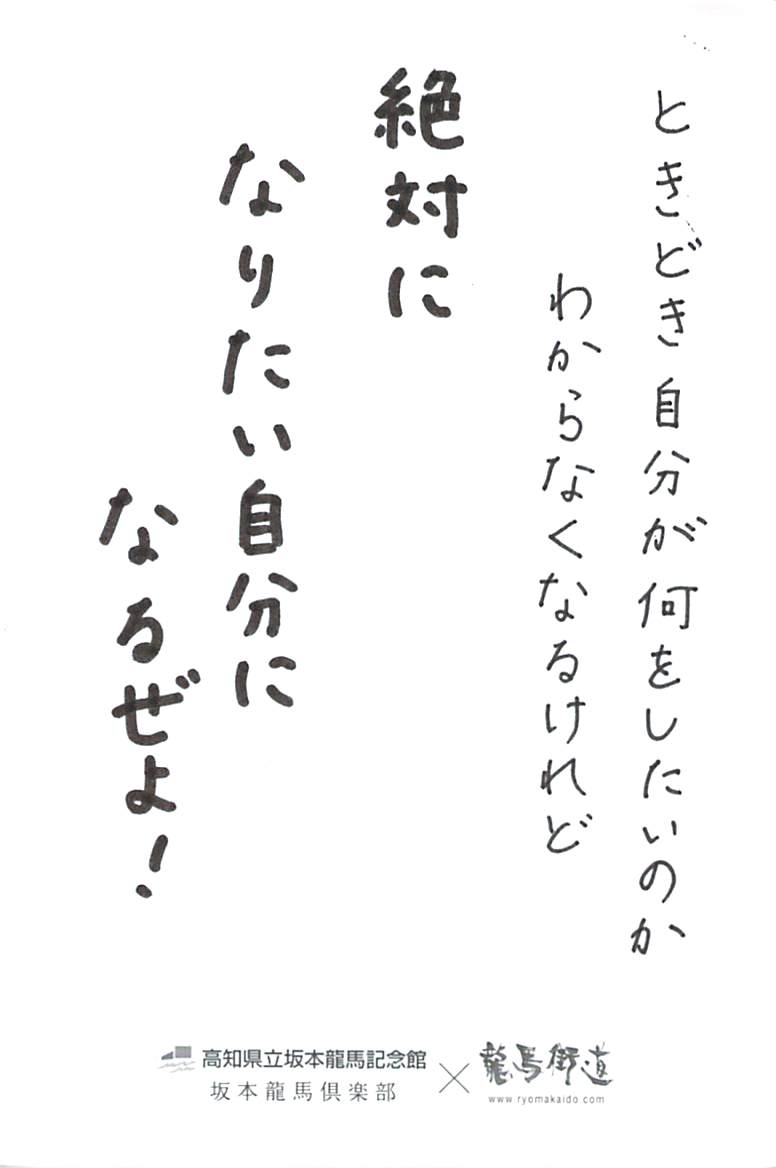 ときどき自分が何をしたいのか
わからなくなるけれど
絶対に
なりたい自分に
なるぜよ!
高知県立坂本龍馬記念館
坂本龍馬倶楽部
×
龍馬街道
www.ryomakaido.com